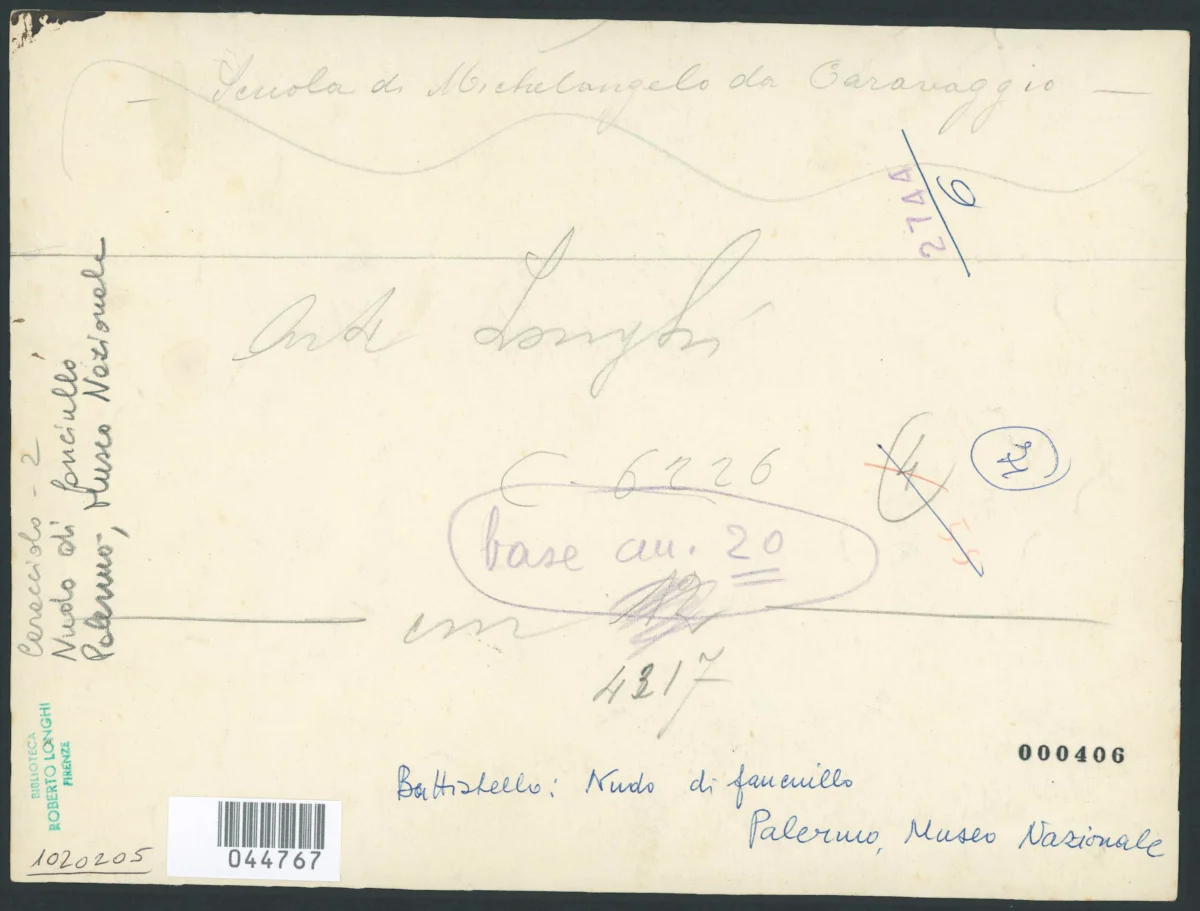 — Scuola di Michelangelo da Caravaggio —
2744
6
Longhi
C - 6226
4
base cm. 20
cm 12
4217
000406
Battistello: Nudo di fanciullo
Palermo, Museo Nazionale
Caracciolo - 2
Nudo di fanciullo
Palermo, Museo Nazionale
BIBLIOTECA
ROBERTO LONGHI
FIRENZE
1020205
044767